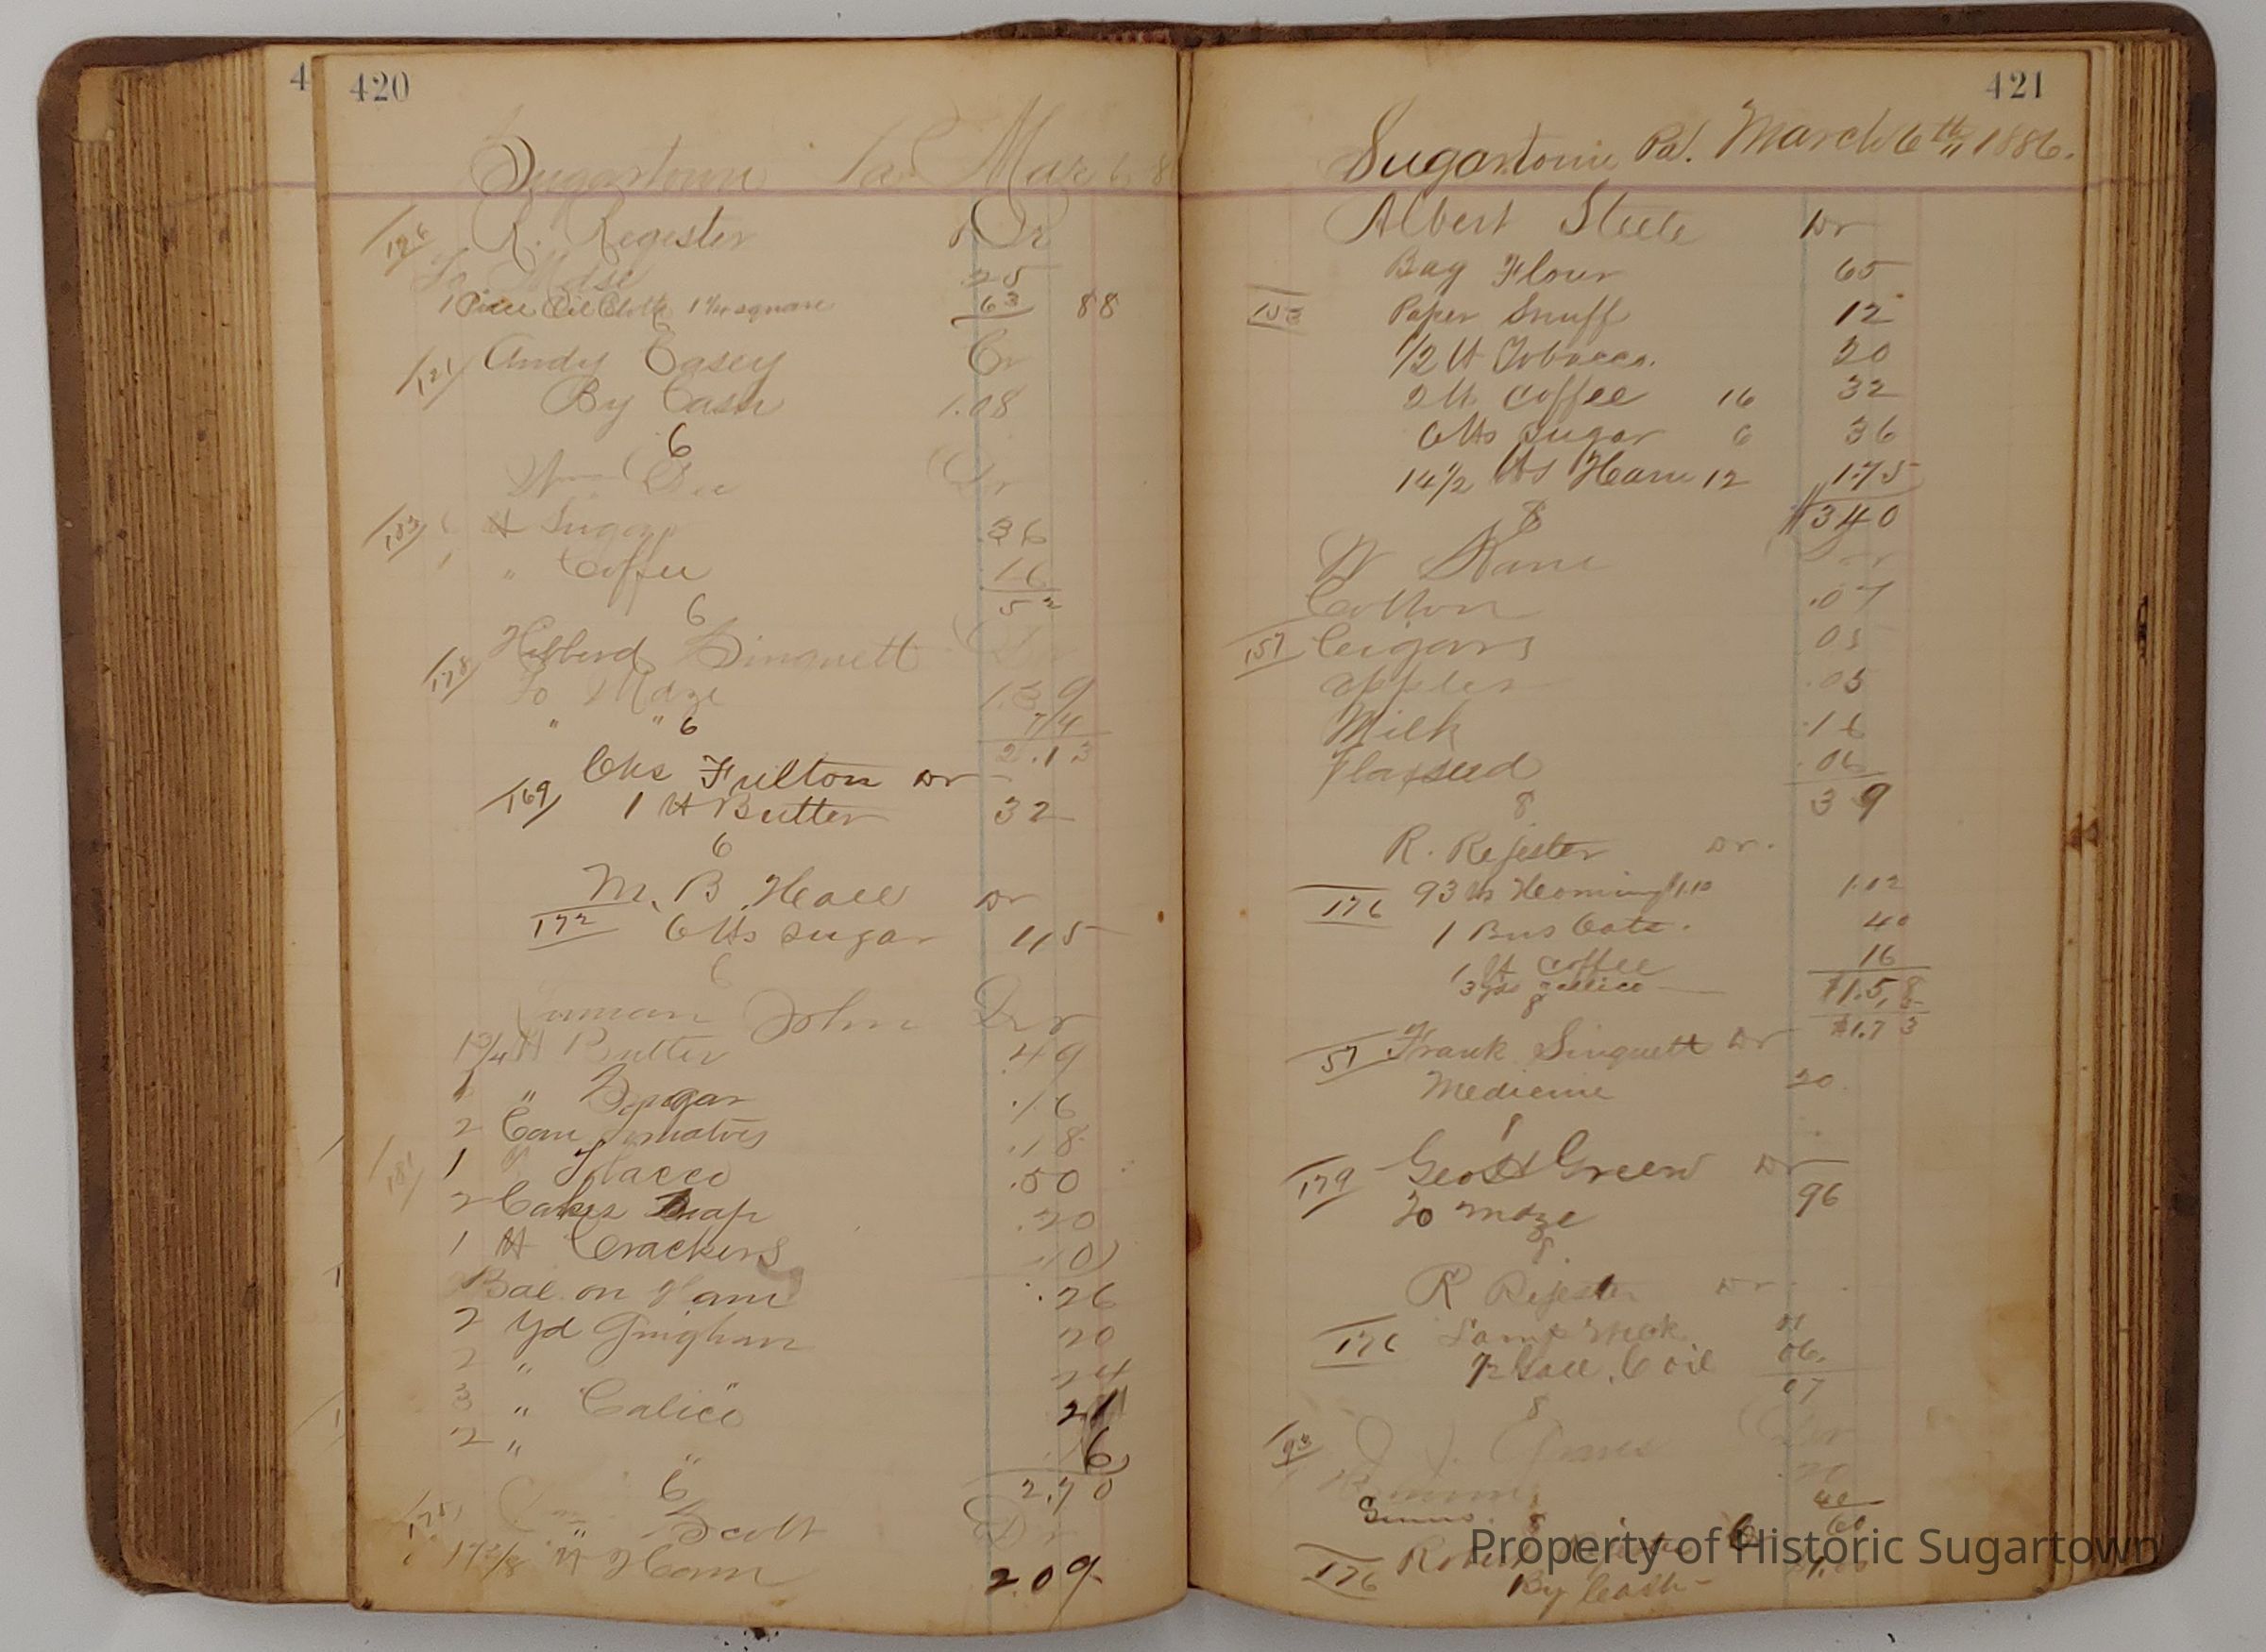 4
420
Sugartown Pa Mar 6 8
126 R. Register Dr
To Mdse 25
1 Piece Oil Cloth 1 1/4 square 63 88
121 Andy Casey Cr
By Cash 1.08
6
Dr
183 6 lb Sugar 36
1 " Coffee 16
52
6
178 Hibberd Sinquett Dr
To Mdze 1.39
" " 74
6
2.13
Chs Fulton Dr
169 1 lb Butter 32
6
M. B. Hall Dr
172 6 lbs Sugar
6
John Dr
1 3/4 lb Butter .49
" Sugar .16
2 Can Tomatoes .18
181 1 " Tobacco .50
2 Cakes Soap .20
1 lb Crackers 10
Bal. on Ham .26
2 yd Gingham 20
2 " 24
3 " Calico 21
2 " " 16
6
2.70
175 Scott Dr
17 3/8 lb Ham 2.09
421
Sugartown Pa. March 6th, 1886.
Albert Steele Dr
Bag Flour 65
153 Paper Snuff 12
1/2 lb Tobacco. 20
2 lb Coffee 16 32
6 lbs Sugar 6 36
14 1/2 lbs Ham 12 1.75
8 $3 40
W Kane Dr
Cotton .07
157 Cigars 05
apples .05
Milk .16
Flaxseed .06
8 39
R. Rejester Dr.
176 93 lbs Heominy 1.10 1.02
1 Bus Oats. 40
1 lb Coffee 16
3 yds Callico $1.58
8
$1.73
57 Frank Sinquett Dr
Medicine 20
8
179 Geo H Green Dr
To Mdze 96
8
R Rejester Dr
176 Lamp Wick 01
1/2 Gall. C oil 06.
07
8
93 Dr
20
40
8 60
176 Robert
By Cash
Property of Historic Sugartown